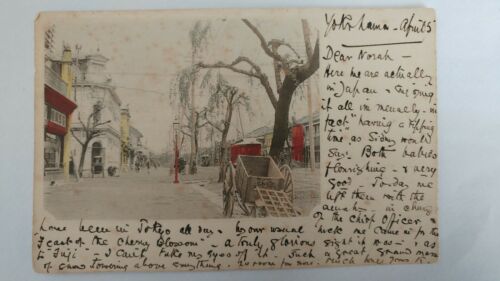 Yokohama - April 5
Dear Norah -
Here we are actually
in Japan &
it all in
fact "having a ripping
time" as Sidney would
say. Both babies
flourishing - & very
good. To-day we
left them with the
amah - in charge
of the Chief Officer - &
have been in Tokyo all day - by our usual luck we came in for the
"Feast of the Cherry Blossom" - a truly glorious sight it was - & as
to "Fuji" - I can't take my eyes off it. Such a great grand mass
of snow towering above everything. No room for more. Much love yours